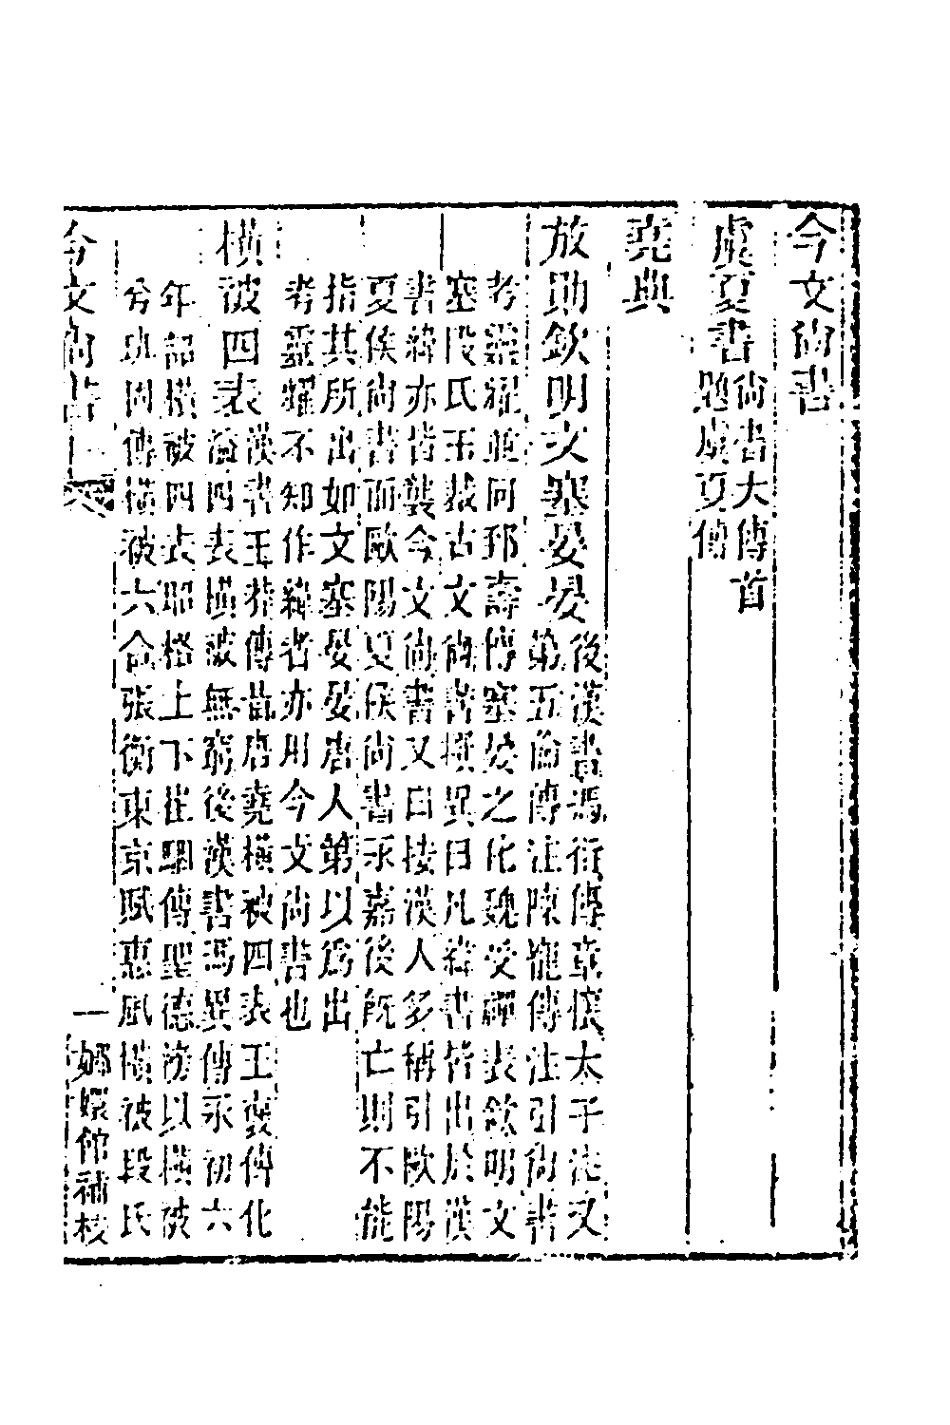 今文尚書
虞夏書尚書大傳首
題虞夏傳
堯典
放勛欽明文塞晏晏後漢書馮衍傳章懷太子注又
第五倫傳注陳寵傳注引尚書
考靈耀並同邳壽傳塞晏之化魏受禪表欽明文
塞段氏玉裁古文尚書撰異曰凡緯書皆出於漢
書緯亦皆襲今文尚書又曰接漢人多稱引歐陽
夏侯尚書而歐陽夏侯尚書永嘉後旣亡則不能
指其所出如文塞晏晏唐人第以爲出
考靈耀不知作緯者亦用今文尚書也
橫被四表漢書王莽傳昔唐堯橫被四表王襃傳化
溢四表橫被無窮後漢書馮異傳永初六
年詔橫被四表昭格上下崔駰傳聖德滂以橫被
兮班固傳橫被六合張衡東京賦惠風橫被段氏
今文尚書
一
嫏嬛館補校